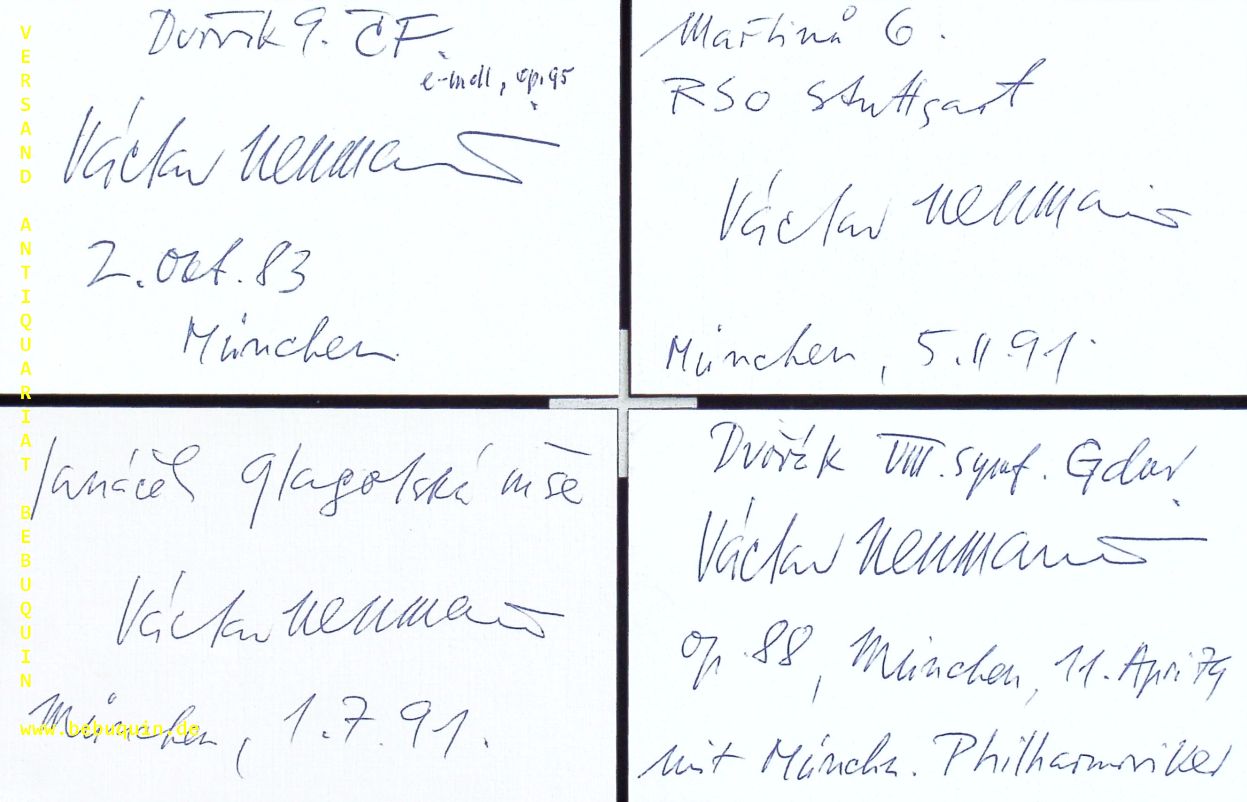 Dvořák 9. ČF.
e-moll, op. 95
Václav Neumann
2. Oct. 83
München
Martinů 6.
RSO Stuttgart
Václav Neumann
München, 5.11.91.
Janáček Glagolská mše
Václav Neumann
München, 1.7.91.
Dvořák VIII. symf. G dur
Václav Neumann
op. 88, München, 11. April 79
mit Münchn. Philharmoniker
VERSAND ANTIQUARIAT BEBUQUIN
www.bebuquin.de